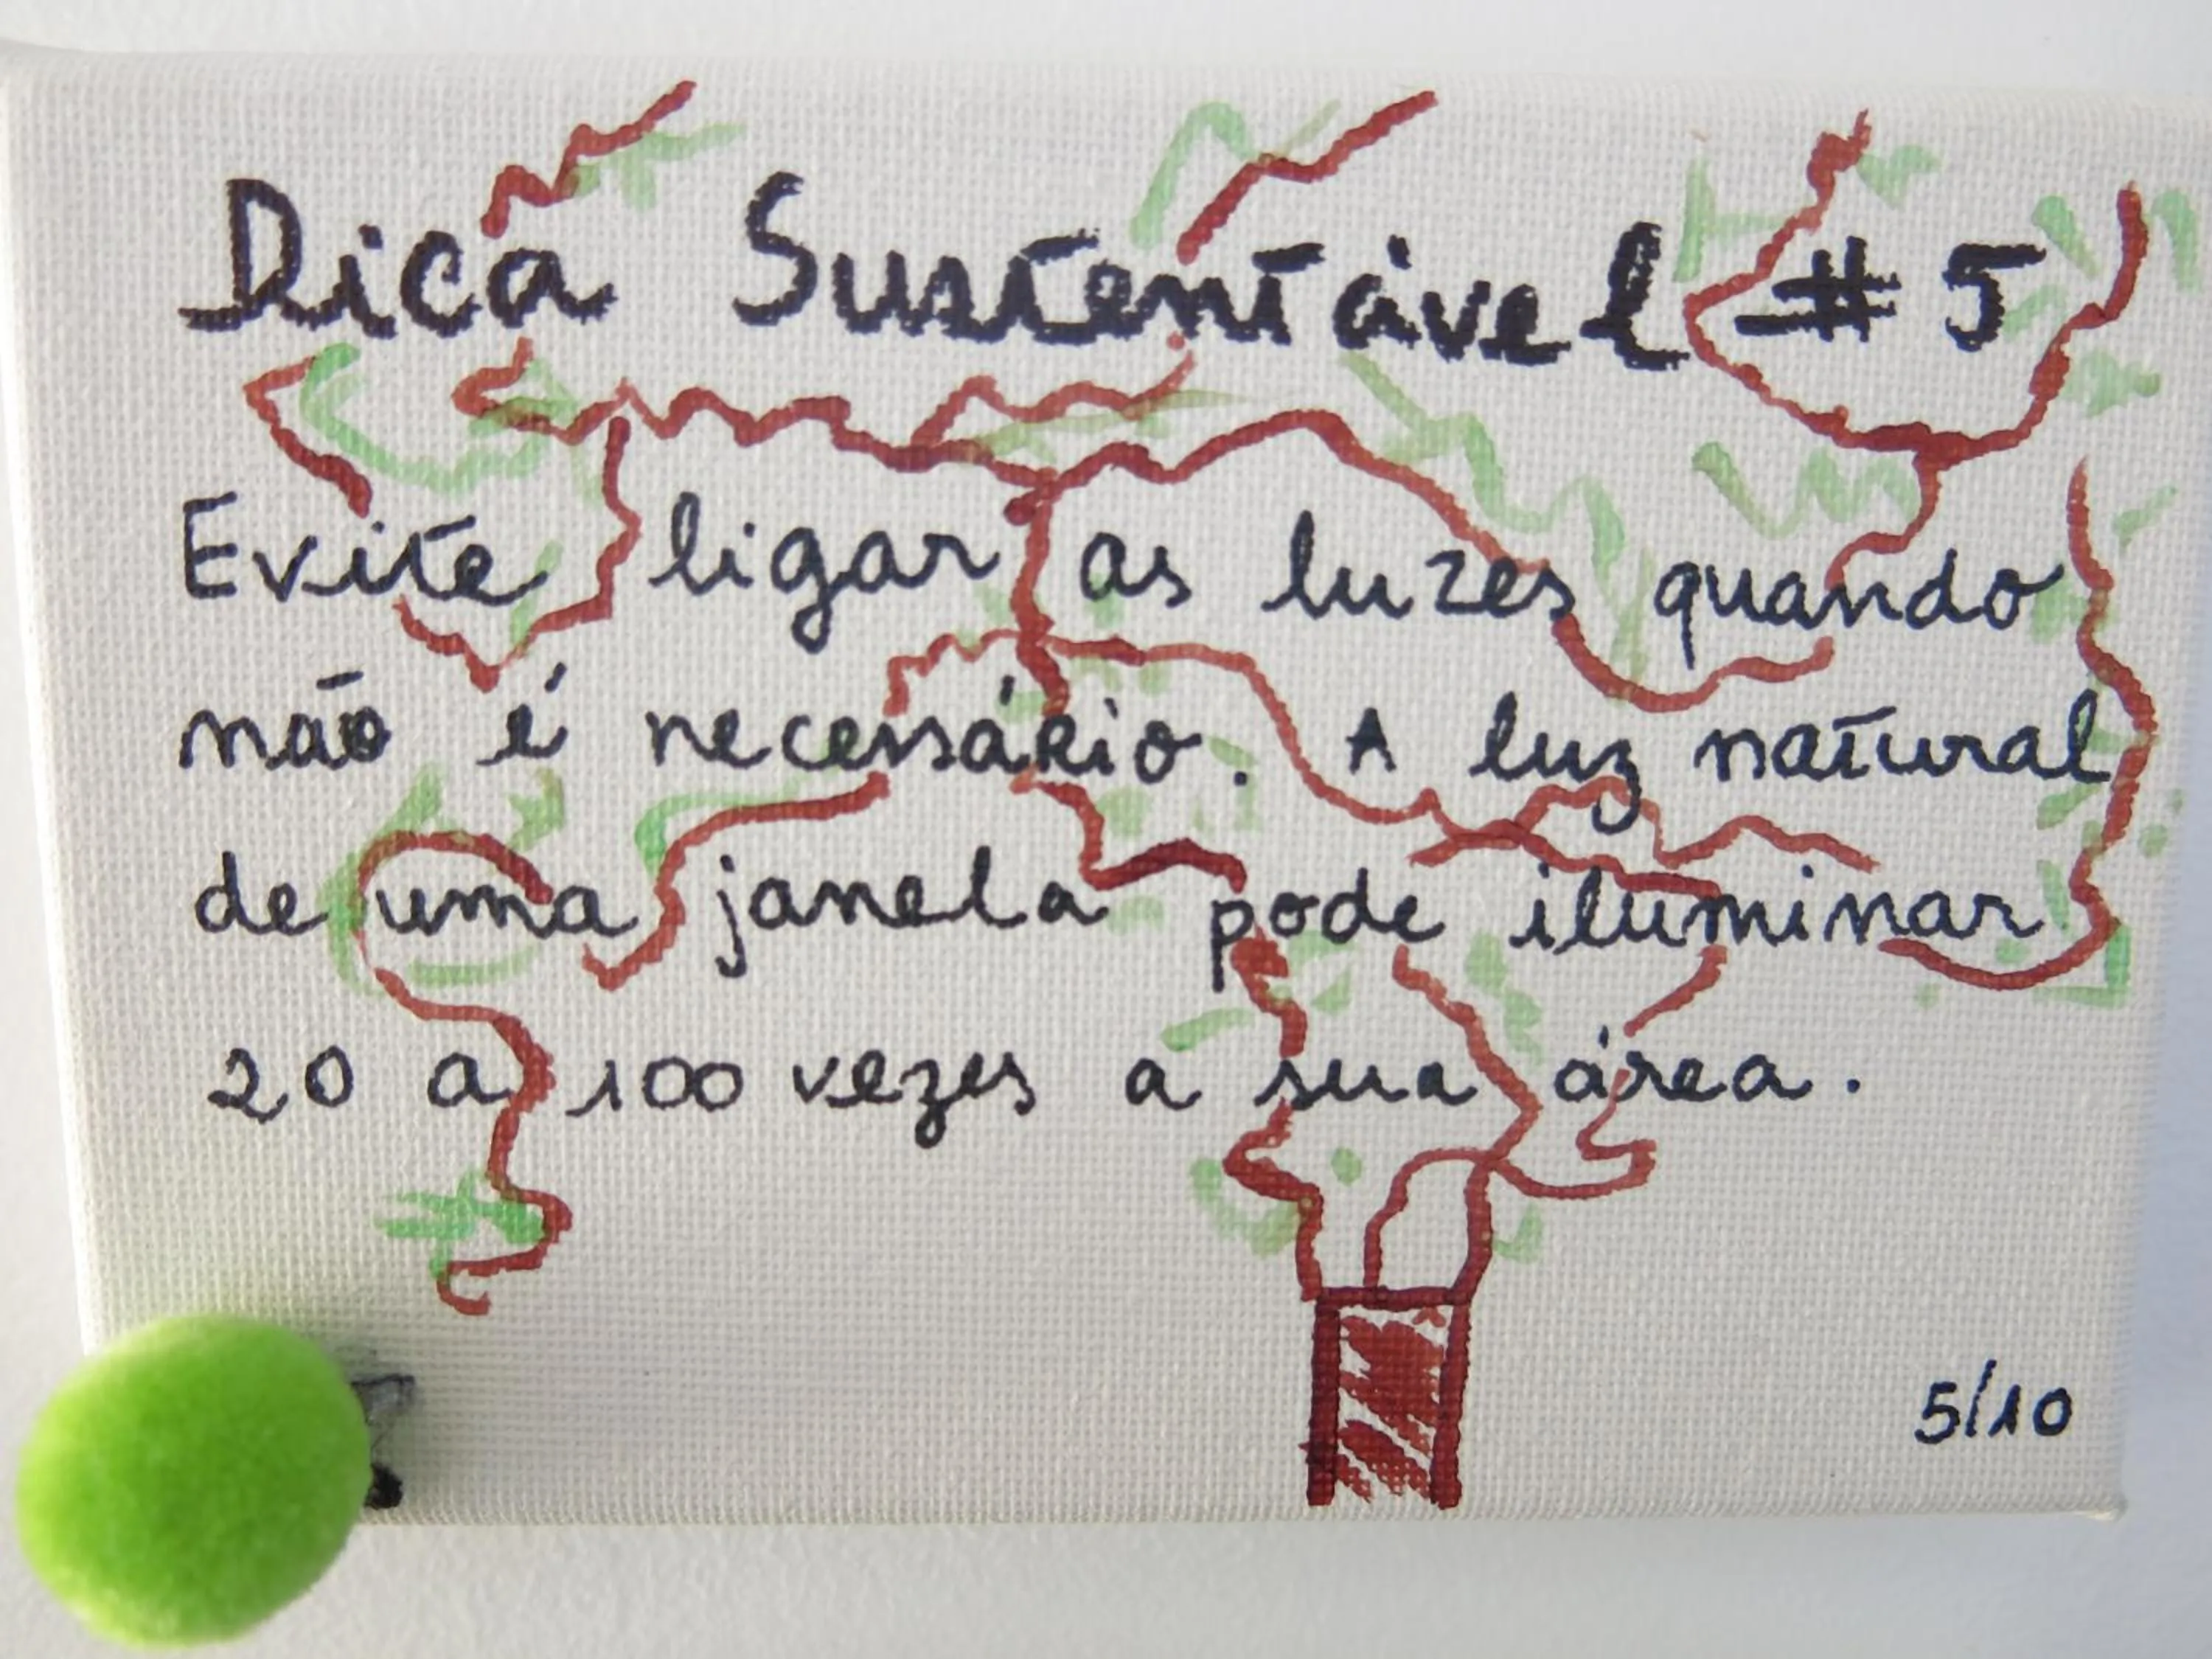 Dica Sustentável #5
Evite ligar as luzes quando
não é necessário. A luz natural
de uma janela pode iluminar
20 a 100 vezes a sua área.
5/10